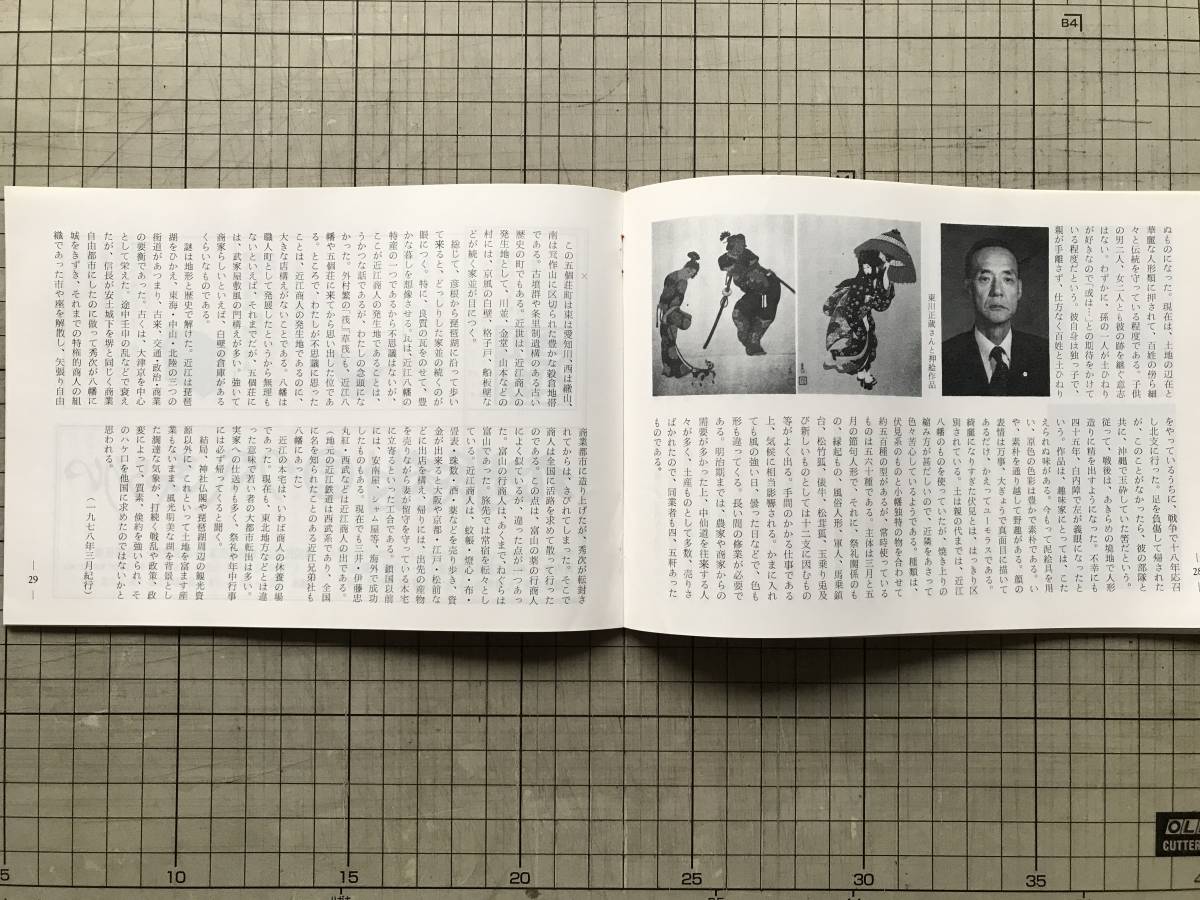 ぬものになつた。現在は、土地の辺在と
華麗な人形類に押されて、百姓の傍ら細
々と伝統を守っている程度である。子供
の男二人、女二人とも彼の跡を継ぐ意志
はない。わずかに、孫の一人が土ひねり
が好きなので、或は…との期待をかけて
いる程度だという。彼自身は独っ子で、
親が手離さず、仕方なく百姓と土ひねり
東川正蔵さんと押絵作品
をやっているうちに、戦争で十八年応召
し北支に行った。足を負傷して帰された
が、このことがなかったら、彼の部隊と
共に、沖縄で玉砕していた筈だという。
従って、戦後は、あきらめの境地で人形
造りに精を出すようになった。不幸にも
四十五年、白内障で左が義眼になったと
いう。作品は、趣味家にとっては、こた
えられぬ味がある。今もって泥絵具を用
い、原色の色彩は豊かで素朴である。い
や、素朴を通り越して野趣がある。顔の
表情は万事、大ぎょうで真面目に描いて
あるだけ、かえってユーモラスである。
綺麗になりすぎた伏見とは、はっきり区
別されている。土は親の代までは、近江
八幡のものを使っていたが、焼き上りの
縮み方が甚だしいので、近隣をあさって
色々苦心しているようである。種類は、
伏見系のものと小幡独特の物を合わせて
約五百種の型があるが、常時使っている
ものは五六十種である。主体は三月と五
月の節句人形で、それに、祭礼関係のも
の、縁起もの、風俗人形、軍人、馬乗鎮
台、松竹狐、俵牛、松茸狐、玉乗り兎及
び新しいものとしては十二支に因むもの
等がよく出る。手間のかかる仕事である
上、気候に相当影響される。かまに入れ
ても風の強い日、曇った日などで、色も
形も違ってくる。長い間の修業が必要で
ある。明治期までは、農家や商家からの
需要が多かった上、中仙道を往来する人
々が多く、土産ものとして多数、売りさ
ばかれたので、同業者も四、五軒あった
ものである。
28
×
この五個荘町は東は愛知川、西は繖山、
南は箕作山に区切られた豊かな穀倉地帯
である。古墳群や条里制遺構のある古い
歴史の町でもある。近世は、近江商人の
発生地として、川並、金堂、山本などの
村には、京風の白壁、格子戸、船板壁な
どが続く家並が目につく。
総じて、彦根から琵琶湖に沿って歩い
て来ると、どっしりした家並の続くのが
眼につく。特に、良質の瓦をのせて、豊
かな暮しを想像させる。瓦は、近江八幡の
特産の一つであるから不思議はないが、
ここが近江商人の発生地であることは、
うかつな話であるが、わたしの念頭にな
かった。外村繁の「筏」「草筏」も、近江八
幡や五個荘に来てから思い出した位であ
る。ところで、わたしが不思議に思った
ことは、近江商人の発生地であるのに、
大きな店構えがないことである。八幡は
職人町として発展したというから無理も
ないといえば、それまでだが、五個荘に
は、武家屋敷風の門構えが多い。強いて
商家らしいといえば、白壁の倉庫がある
くらいなものである。
謎は地形と歴史で解けた。近江は琵琶
湖をひかえ、東海・中山・北陸の三つの
街道があつまり、古来、交通・政治・商業
の要衝であった。古くは、大津京を中心
として栄えた。途中壬申の乱などで衰え
たが、信長が安土城下を堺と同じく商業
自由都市にしたのに倣って秀次が八幡に
城をきずき、それまでの特権的商人の組
織であった市や座を解散し、矢張り自由
商業都市に造り上げたが、秀次が転封さ
れてからは、さびれてしまった。そこで
商人は全国に活路を求めて散って行った
のである。この点は、富山の薬の行商人
によく似ているが、違った点が一つあっ
た。富山の行商人は、あくまでねぐらは
富山であった。旅先では常宿を転々とし
ている。近江商人は、蚊帳・燈心・布・
畳表・珠数・酒・薬などを売り歩き、資
金が出来ると大阪や京都・江戸・松前な
どに出店を構え、帰りには、出先の産物
を売りながら妻が留守を守っている本宅
に立寄るといった工合である。鎖国以前
には、安南屋、シャム屋等、海外で成功
したものもある。現在でも三井・伊藤忠
丸紅・西武などは近江商人の出である。
(地元の近江鉄道は西武系であり、全国
に名を知られたことのある近江兄弟社も
八幡にあった)
近江の本宅は、いわば商人の休養の場
であった。現在も、東北地方などとは違
った意味で若い者の大都市転出は多い。
実家への仕送りも多く、祭礼や年中行事
には必ず帰ってくると聞く。
結局、神社仏閣や琵琶湖周辺の観光資
源以外に、これといって土地を富ます産
業もないまま、風光明美な湖を背景とし
た闊達な気象が、打続く戦乱や政策、政
変によって、質素、倹約を強いられ、そ
のハケ口を他国に求めたのではないかと
思われる。
(一九七八年三月紀行)
29
B4
OL
CUTTER
5
10
15
20
25
30
35